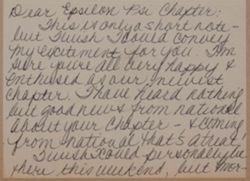 Dear Epsilon Psi Chapter:
This is only a short note -
but I wish I could convey
my excitement for you. I'm
sure you're all very happy &
enthused as our newest
chapter. I have heard nothing
but good news from national
about your chapter - & coming
from national that's a treat.
I wish I could personally be
there this weekend, but